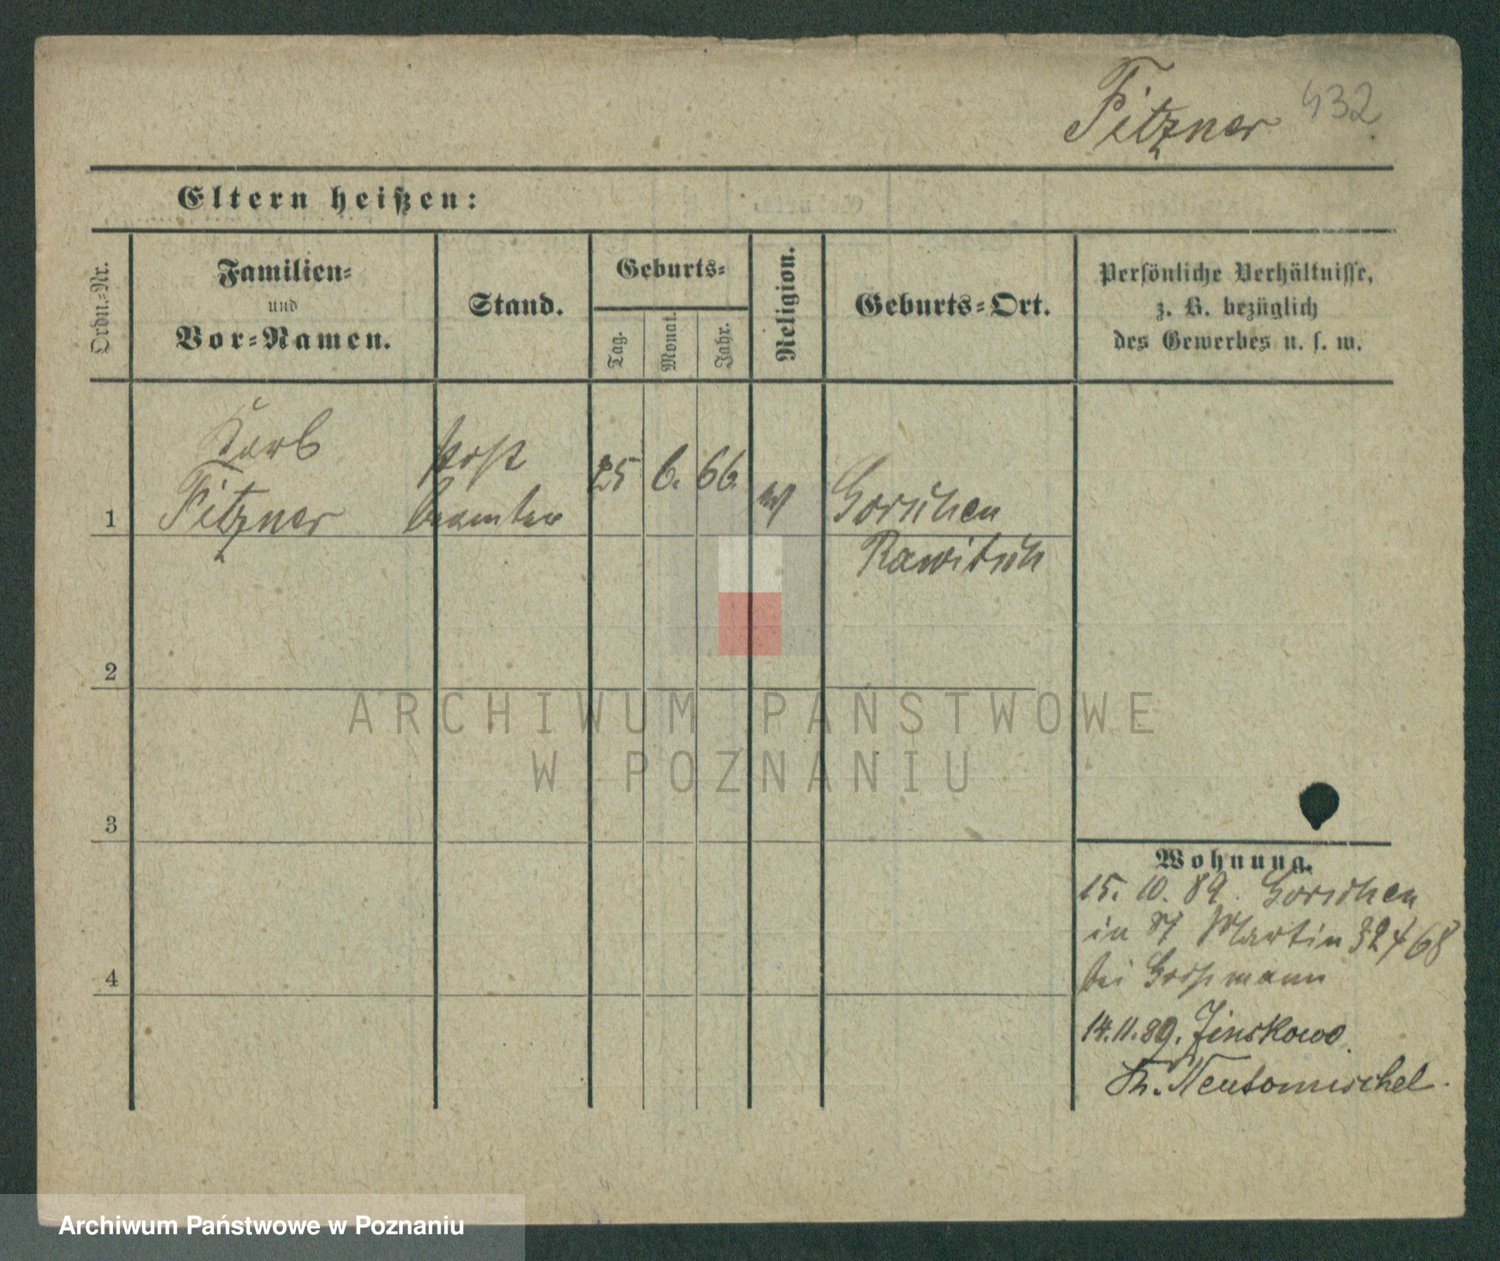 Fitzner 432
Eltern heißen:
Ordn.-Nr.
Familien-
und
Vor-Namen.
Stand.
Geburts-
Tag.
Monat.
Jahr.
Religion.
Geburts-Ort.
Persönliche Verhältnisse,
z. B. bezüglich
des Gewerbes u. s. w.
Karl
Fitzner
Post
beamter
25 6. 66.
1
Gorchen
Rawitsch
2
3
4
ARCHIWUM PAŃSTWOWE
W POZNANIU
Wohnung.
15. 10. 89. Gorchen
in St Martin 32
bei Großmann
14.11.89. Zinskowo
Kr. Neutomischel.
Archiwum Państwowe w Poznaniu